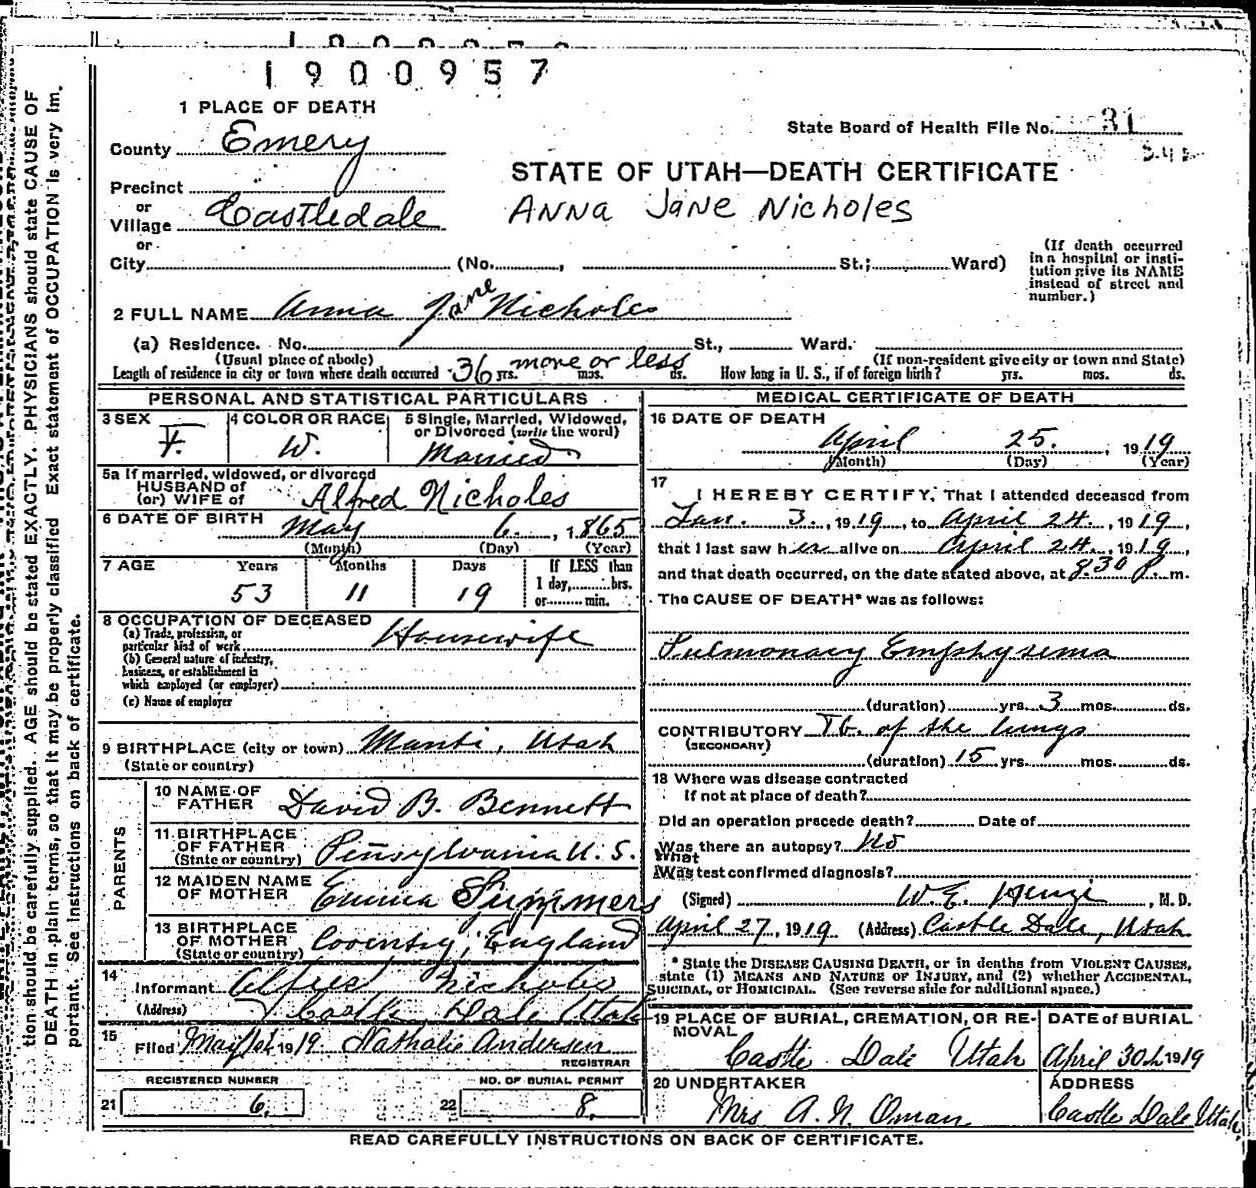 1900957
1 PLACE OF DEATH
State Board of Health File No. 31
County Emery
STATE OF UTAH—DEATH CERTIFICATE
Precinct
or
Village Castledale
Anna Jane Nicholes
or
City (No. , St.; Ward)
(If death occurred
in a hospital or insti-
tution give its NAME
instead of street and
number.)
2 FULL NAME Anna Jane Nicholes
(a) Residence. No. St., Ward.
(Usual place of abode) (If non-resident give city or town and State)
Length of residence in city or town where death occurred 36 yrs. more or less mos. ds. How long in U. S., if of foreign birth? yrs. mos. ds.
PERSONAL AND STATISTICAL PARTICULARS
3 SEX
F.
4 COLOR OR RACE
W.
5 Single, Married, Widowed,
or Divorced (write the word)
Married
5a If married, widowed, or divorced
HUSBAND of
(or) WIFE of Alfred Nicholes
6 DATE OF BIRTH
May 6. , 1865
(Month) (Day) (Year)
7 AGE Years Months Days
53 11 19
If LESS than
1 day,......hrs.
or.........min.
8 OCCUPATION OF DECEASED
(a) Trade, profession, or
particular kind of work Housewife
(b) General nature of industry,
business, or establishment in
which employed (or employer)
(c) Name of employer
9 BIRTHPLACE (city or town) Manti, Utah
(State or country)
PARENTS
10 NAME OF
FATHER David B. Bennett
11 BIRTHPLACE
OF FATHER
(State or country) Pennsylvania U. S.
12 MAIDEN NAME
OF MOTHER Emma Summers
13 BIRTHPLACE
OF MOTHER
(State or country) Coventry, England
14
Informant Alfred Nicholes
(Address) Castle Dale Utah
15
Filed May 1919 Nathalie Andersen
REGISTRAR
REGISTERED NUMBER
21 6.
NO. OF BURIAL PERMIT
22 8.
MEDICAL CERTIFICATE OF DEATH
16 DATE OF DEATH
April 25. , 1919
(Month) (Day) (Year)
17
I HEREBY CERTIFY, That I attended deceased from
Jan. 3. , 1919, to April 24. , 1919,
that I last saw her alive on April 24. , 1919,
and that death occurred, on the date stated above, at 8.30 P. m.
The CAUSE OF DEATH* was as follows:
Pulmonary Emphysema
(duration) yrs. 3 mos. ds.
CONTRIBUTORY Tb. of the lungs
(SECONDARY)
(duration) 15 yrs. mos. ds.
18 Where was disease contracted
If not at place of death?
Did an operation precede death? Date of
Was there an autopsy? No
What
Was test confirmed diagnosis?
(Signed) W. E. , M. D.
April 27, 1919 (Address) Castle Dale, Utah
* State the DISEASE CAUSING DEATH, or in deaths from VIOLENT CAUSES,
state (1) MEANS AND NATURE OF INJURY, and (2) whether ACCIDENTAL,
SUICIDAL, or HOMICIDAL. (See reverse side for additional space.)
19 PLACE OF BURIAL, CREMATION, OR RE-
MOVAL
Castle Dale Utah
DATE of BURIAL
April 30th 1919
20 UNDERTAKER
Mrs A. N. Oman
ADDRESS
Castle Dale Utah
READ CAREFULLY INSTRUCTIONS ON BACK OF CERTIFICATE.
tion should be carefully supplied. AGE should be stated EXACTLY. PHYSICIANS should state CAUSE OF
DEATH in plain terms, so that it may be properly classified. Exact statement of OCCUPATION is very im-
portant. See instructions on back of certificate.